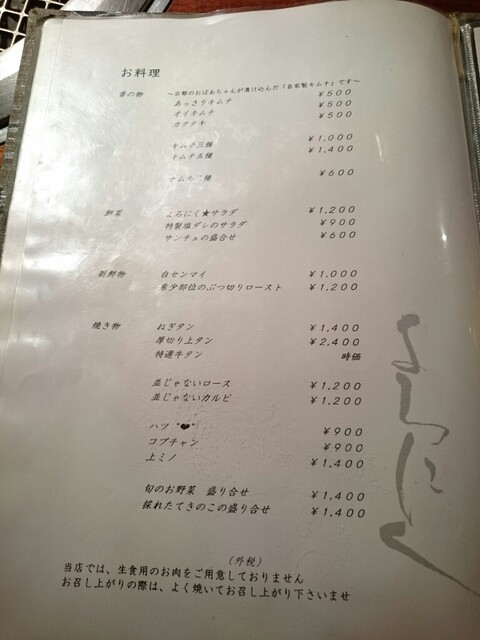 お料理
香の物 ～京都のおばあちゃんが漬け込んだ「自家製キムチ」です～
あっさりキムチ ￥500
オイキムチ ￥500
カクテキ ￥500
キムチ三種 ￥1,000
キムチ五種 ￥1,400
ナムル三種 ￥600
鮮菜 よろにく★サラダ ￥1,200
特製塩ダレのサラダ ￥900
サンチュの盛合せ ￥600
新鮮物 白センマイ ￥1,000
希少部位のぶつ切りロースト ￥1,200
焼き物 ねぎタン ￥1,400
厚切り上タン ￥2,400
特選牛タン 時価
並じゃないロース ￥1,200
並じゃないカルビ ￥1,200
ハツ "❤" ￥900
コプチャン ￥900
上ミノ ￥1,400
旬のお野菜 盛り合せ ￥1,400
採れたてきのこの盛り合せ ￥1,400
(外税)
当店では、生食用のお肉をご用意しておりません
お召し上がりの際は、よく焼いてお召し上がり下さいませ
よろにく